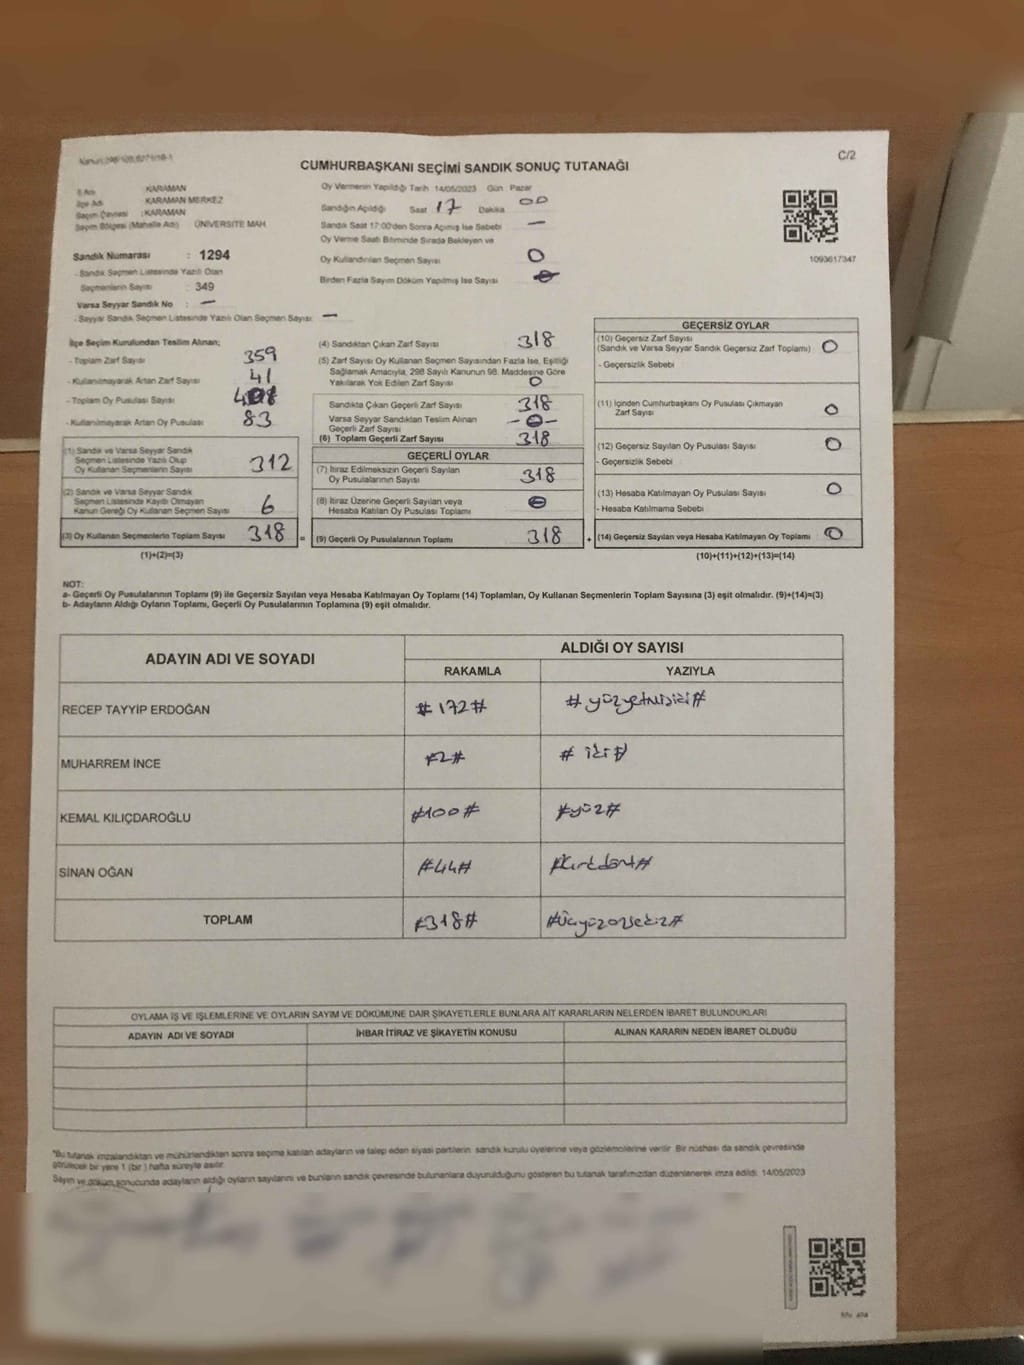 C/2
CUMHURBAŞKANI SEÇİMİ SANDIK SONUÇ TUTANAĞI
İl Adı : KARAMAN
İlçe Adı : KARAMAN MERKEZ
Seçim Çevresi : KARAMAN
Seçim Bölgesi (Mahalle Adı) : ÜNİVERSİTE MAH
Sandık Numarası : 1294
- Sandık Seçmen Listesinde Yazılı Olan
Seçmenlerin Sayısı : 349
Varsa Seyyar Sandık No : —
- Seyyar Sandık Seçmen Listesinde Yazılı Olan Seçmen Sayısı : —
Oy Vermenin Yapıldığı Tarih : 14/05/2023 Gün : Pazar
Sandığın Açıldığı Saat 17 Dakika 00
Sandık Saat 17:00'den Sonra Açımış İse Sebebi —
Oy Verme Saati Bitiminde Sırada Bekleyen ve
Oy Kullandırılan Seçmen Sayısı 0
Birden Fazla Sayım Döküm Yapılmış İse Sayısı 0
1093617347
İlçe Seçim Kurulundan Teslim Alınan;
- Toplam Zarf Sayısı 359
- Kullanılmayarak Artan Zarf Sayısı 41
- Toplam Oy Pusulası Sayısı
- Kullanılmayarak Artan Oy Pusulası 83
(1) Sandık ve Varsa Seyyar Sandık
Seçmen Listesinde Yazılı Olup
Oy Kullanan Seçmenlerin Sayısı 312
(2) Sandık ve Varsa Seyyar Sandık
Seçmen Listesinde Kayıtlı Olmayan
Kanun Gereği Oy Kullanan Seçmen Sayısı 6
(3) Oy Kullanan Seçmenlerin Toplam Sayısı 318 =
(1)+(2)=(3)
(4) Sandıktan Çıkan Zarf Sayısı 318
(5) Zarf Sayısı Oy Kullanan Seçmen Sayısından Fazla İse, Eşitliği
Sağlamak Amacıyla, 298 Sayılı Kanunun 98. Maddesine Göre
Yakılarak Yok Edilen Zarf Sayısı 0
Sandıkta Çıkan Geçerli Zarf Sayısı 318
Varsa Seyyar Sandıktan Teslim Alınan
Geçerli Zarf Sayısı -0-
(6) Toplam Geçerli Zarf Sayısı 318
GEÇERLİ OYLAR
(7) İtiraz Edilmeksizin Geçerli Sayılan
Oy Pusulalarının Sayısı 318
(8) İtiraz Üzerine Geçerli Sayılan veya
Hesaba Katılan Oy Pusulası Toplamı 0
(9) Geçerli Oy Pusulalarının Toplamı 318 +
GEÇERSİZ OYLAR
(10) Geçersiz Zarf Sayısı
(Sandık ve Varsa Seyyar Sandık Geçersiz Zarf Toplamı) 0
- Geçersizlik Sebebi
(11) İçinden Cumhurbaşkanı Oy Pusulası Çıkmayan
Zarf Sayısı 0
(12) Geçersiz Sayılan Oy Pusulası Sayısı 0
- Geçersizlik Sebebi
(13) Hesaba Katılmayan Oy Pusulası Sayısı 0
- Hesaba Katılmama Sebebi
(14) Geçersiz Sayılan veya Hesaba Katılmayan Oy Toplamı 0
(10)+(11)+(12)+(13)=(14)
NOT:
a- Geçerli Oy Pusulalarının Toplamı (9) ile Geçersiz Sayılan veya Hesaba Katılmayan Oy Toplamı (14) Toplamları, Oy Kullanan Seçmenlerin Toplam Sayısına (3) eşit olmalıdır. (9)+(14)=(3)
b- Adayların Aldığı Oyların Toplamı, Geçerli Oy Pusulalarının Toplamına (9) eşit olmalıdır.
ADAYIN ADI VE SOYADI
ALDIĞI OY SAYISI
RAKAMLA YAZIYLA
RECEP TAYYİP ERDOĞAN #172# #yüzyetmişiki#
MUHARREM İNCE #2# #iki#
KEMAL KILIÇDAROĞLU #100# #yüz#
SİNAN OĞAN #44# #kırkdört#
TOPLAM #318# #Üçyüzonsekiz#
OYLAMA İŞ VE İŞLEMLERİNE VE OYLARIN SAYIM VE DÖKÜMÜNE DAİR ŞİKAYETLERLE BUNLARA AİT KARARLARIN NELERDEN İBARET BULUNDUKLARI
ADAYIN ADI VE SOYADI İHBAR İTİRAZ VE ŞİKAYETİN KONUSU ALINAN KARARIN NEDEN İBARET OLDUĞU
*Bu tutanak imzalandıktan ve mühürlendikten sonra seçime katılan adayların ve talep eden siyasi partilerin sandık kurulu üyelerine veya gözlemcilerine verilir. Bir nüshası da sandık çevresinde
görülecek bir yere 1 (bir) hafta süreyle asılır.
Sayım ve döküm sonucunda adayların aldığı oyların sayılarını ve bunların sandık çevresinde bulunanlara duyurulduğunu gösteren bu tutanak tarafımızdan düzenlenerek imza edildi. 14/05/2023